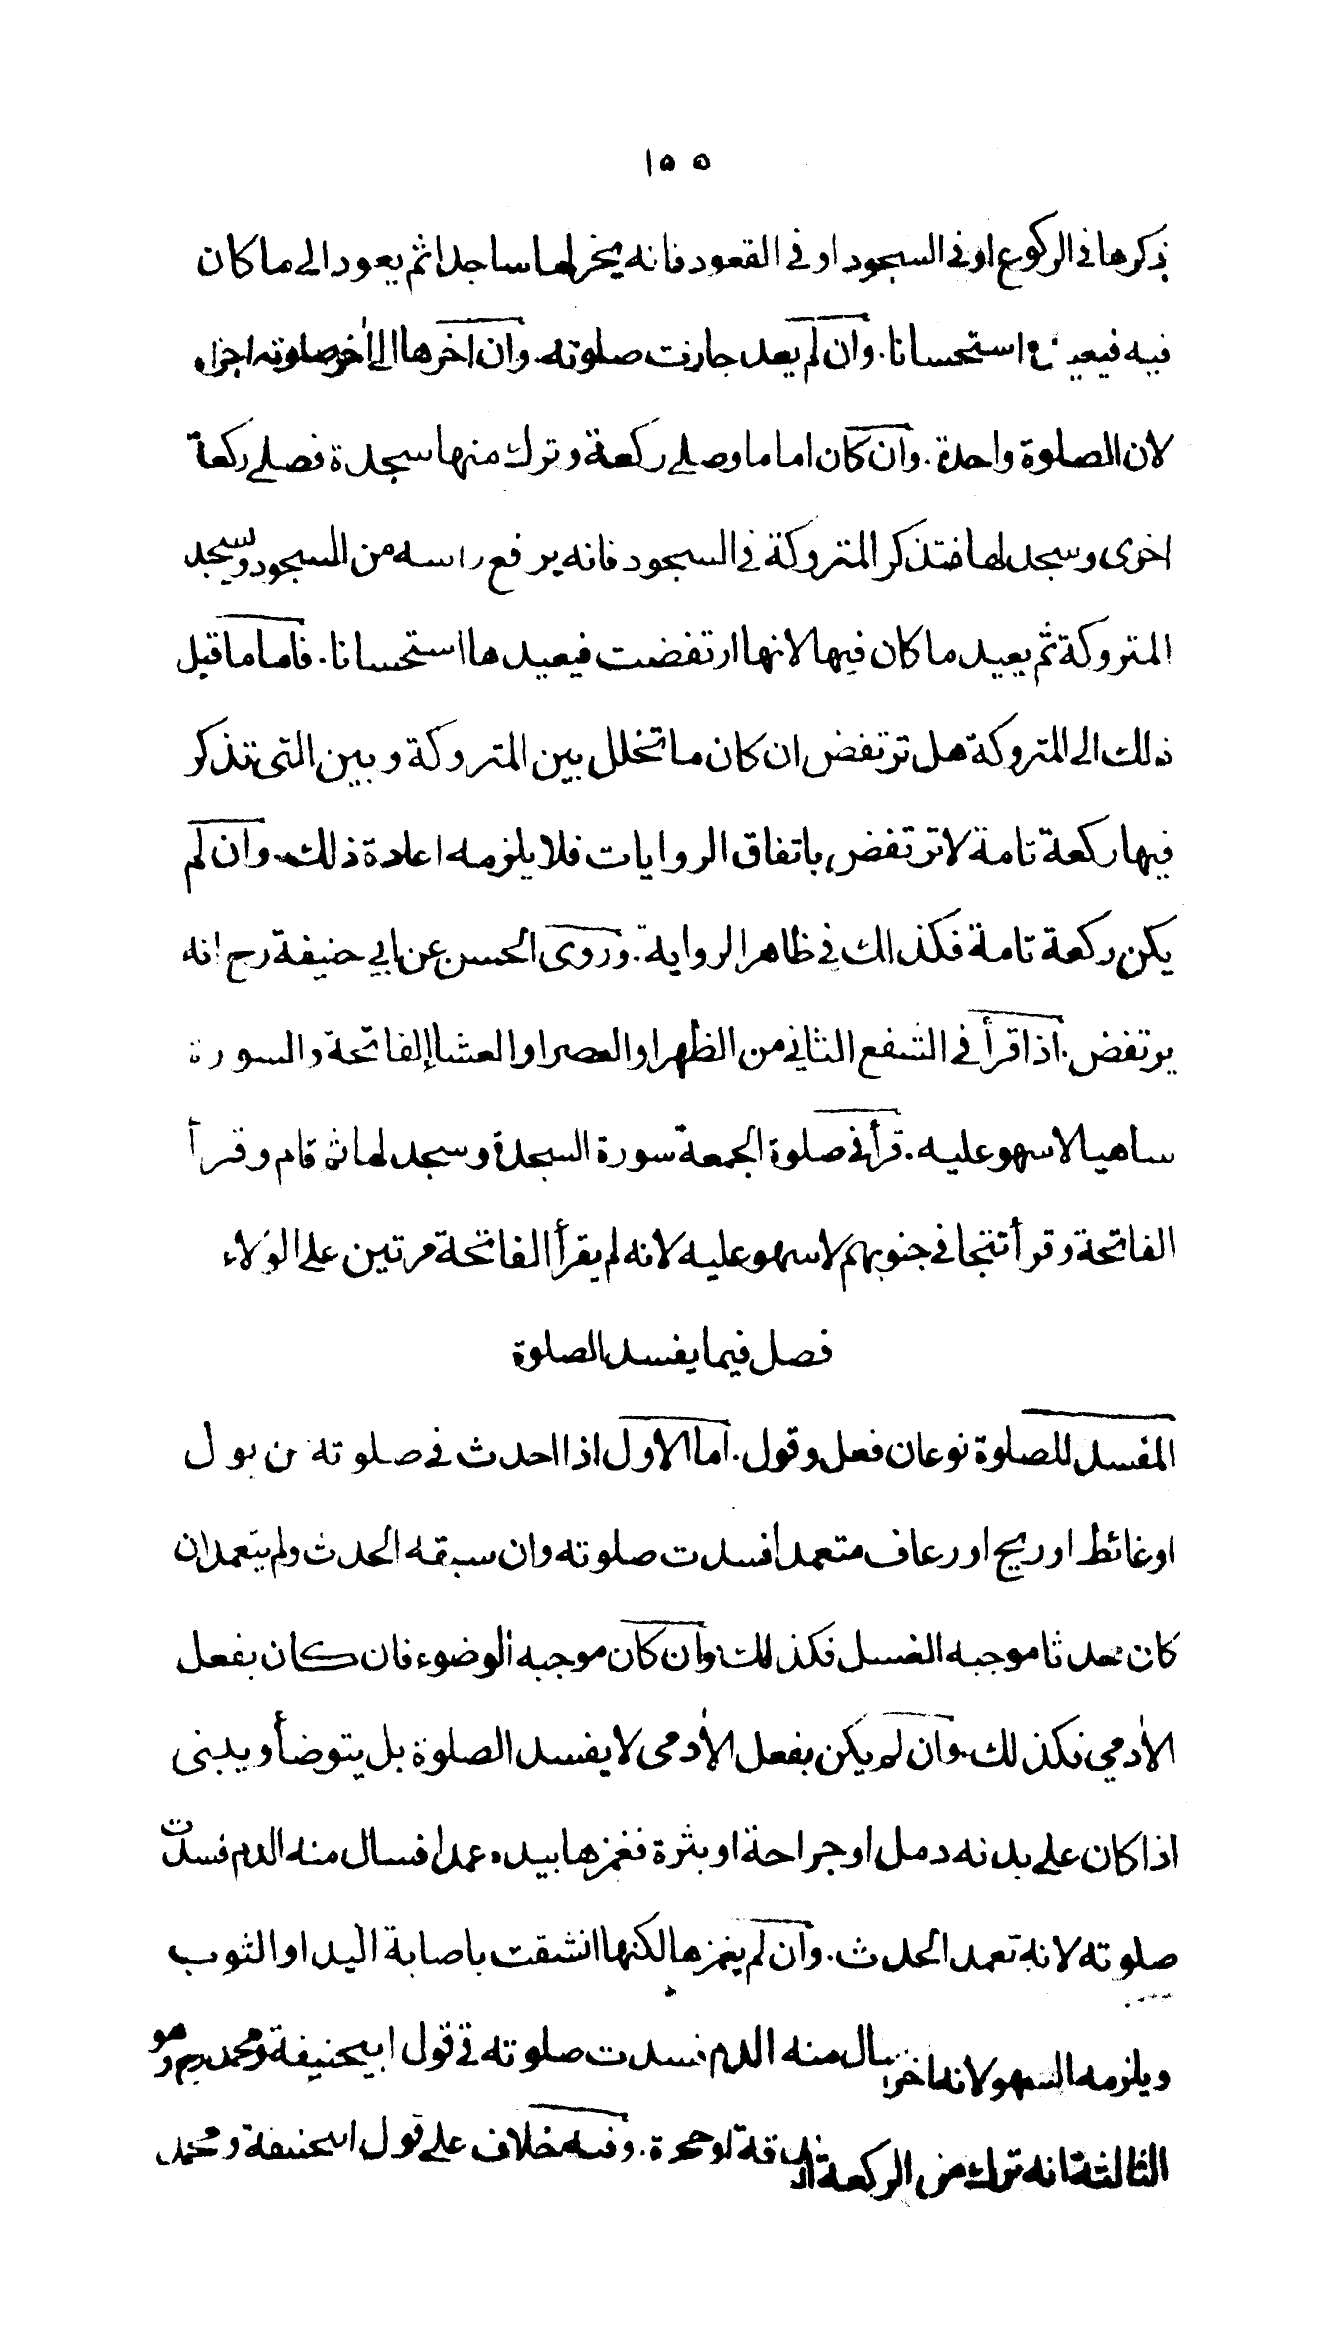 ١٥٥
ذكرها في الركوع او في السجود او في القعود فانه يخر لها ساجدا ثم يعود الى ما كان
فيه فيعيد استحسانا. وان لم يعد جازت صلوته. وان اخرها الى اٰخر صلوته اجزاه
لان الصلوة واحدة. وان كان اماما وصلى ركعة وترك منها سجدة فصلى ركعة
اخرى وسجد لها فتذكر المتروكة في السجود فانه يرفع راسه من السجود ويسجد
المتروكة ثم يعيد ما كان فيها لانها ارتفضت فيعيدها استحسانا. فاما ما قبل
ذلك الى المتروكة هل ترتفض ان كان ما تخلل بين المتروكة وبين التى تذكر
فيها ركعة تامة لا ترتفض باتفاق الروايات فلا يلزمه اعادة ذلك. وان لم
يكن ركعة تامة فكذالك في ظاهر الرواية. وروى الحسن عن ابي حنيفة رح انه
يرتفض. اذا قرأ في الشفع الثاني من الظهر او العصر او العشاء الفاتحة والسورة
ساهيا لا سهو عليه. قرأ في صلوة الجمعة سورة السجدة وسجد لها ثم قام وقرأ
الفاتحة وقرأ تتجافى جنوبهم لا سهو عليه لانه لم يقرأ الفاتحة مرتين على الولاء
فصل فيما يفسد الصلوة
المفسد للصلوة نوعان فعل وقول. اما الاول اذا احدث في صلوته من بول
او غائط او ريح او رعاف متعمدا فسدت صلوته وان سبقه الحدث ولم يتعمد ان
كان حدثا موجبه الغسل فكذلك وان كان موجبه الوضوء فان كان بفعل
الاٰدمي فكذلك. وان لم يكن بفعل الاٰدمى لا يفسد الصلوة بل يتوضأ ويبنى
اذا كان على بدنه دمل او جراحة او بثرة فغمزها بيده عمدا فسال منه الدم فسدت
صلوته لانه تعمد الحدث. وان لم يغمزها لكنها انشقت باصابة اليد او الثوب
ويلزمه السهو لانه اخر سال منه الدم فسدت صلوته في قول ابيحنيفة ومحمد رح وهو
الثالثة انه ترك من الركعة وفيه خلاف على قول ابيحنيفة ومحمد